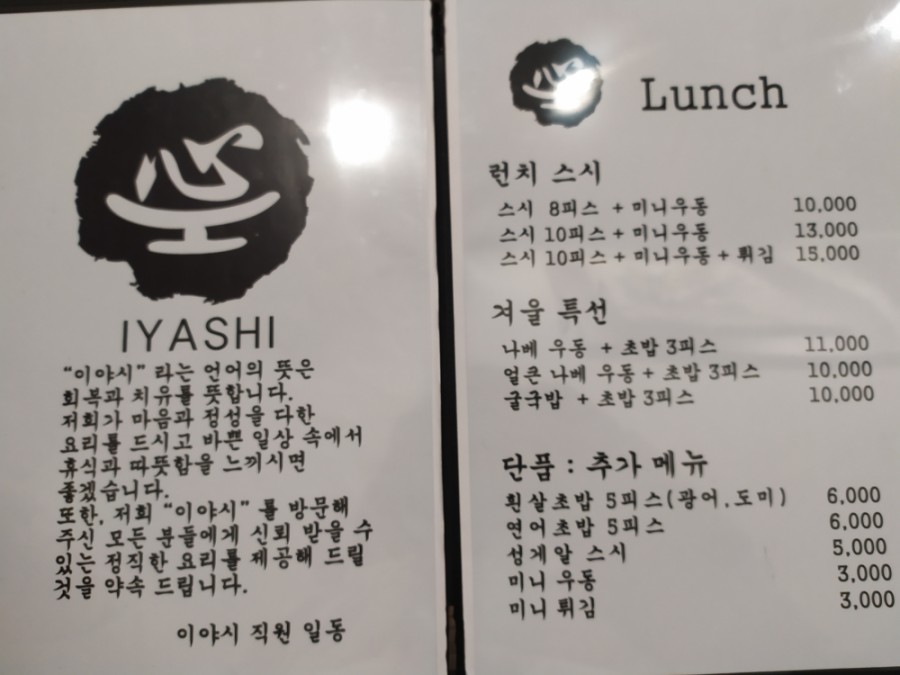 IYASHI
"이야시" 라는 언어의 뜻은
회복과 치유를 뜻합니다.
저희가 마음과 정성을 다한
요리를 드시고 바쁜 일상 속에서
휴식과 따뜻함을 느끼시면
좋겠습니다.
또한, 저희 "이야시" 를 방문해
주신 모든 분들에게 신뢰 받을 수
있는 정직한 요리를 제공해 드릴
것을 약속 드립니다.
이야시 직원 일동
Lunch
런치 스시
스시 8피스 + 미니우동 10,000
스시 10피스 + 미니우동 13,000
스시 10피스 + 미니우동 + 튀김 15,000
겨울 특선
나베 우동 + 초밥 3피스 11,000
얼큰 나베 우동 + 초밥 3피스 10,000
굴국밥 + 초밥 3피스 10,000
단품 : 추가 메뉴
흰살초밥 5피스(광어.도미) 6,000
연어초밥 5피스 6,000
성게알 스시 5,000
미니 우동 3,000
미니 튀김 3,000